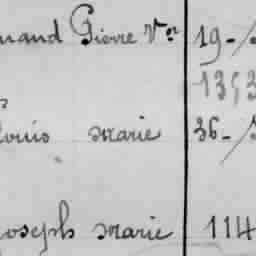 mand Pierre Vor 19-
1353
Louis Marie 36-
Joseph Marie 114